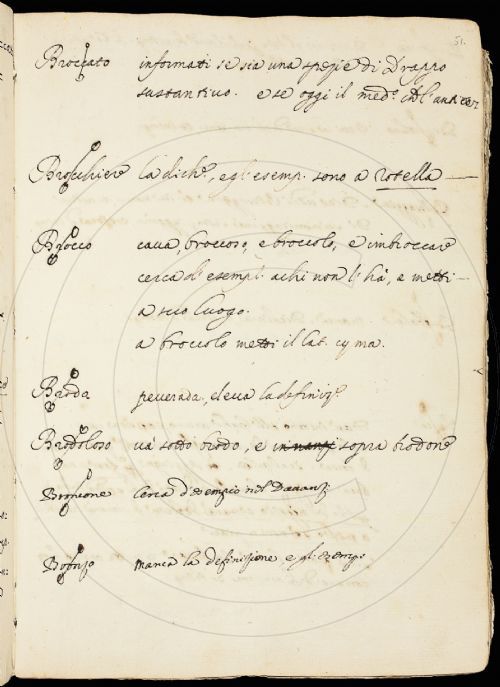 51.
Broccato informati se sia una spezie di Drappo
sustantivo. e se oggi il med.º
Brocchiere la dich.e, e gl'esemp. sono a rotella
Brocco cava, broccoso, e broccolo, e imbroccare
cerca d'esempi. a chi non l'hà, e metti
a suo luogo.
a broccolo metti il lat. cyma.
Broda peverada, e leva la definiz.e
Brodoloso và sotto brodo, e innanzi sopra brodone
Broncone Cerca d'esempio nel Davanz.
Bronzo manca la definizione, e gl'esemp.